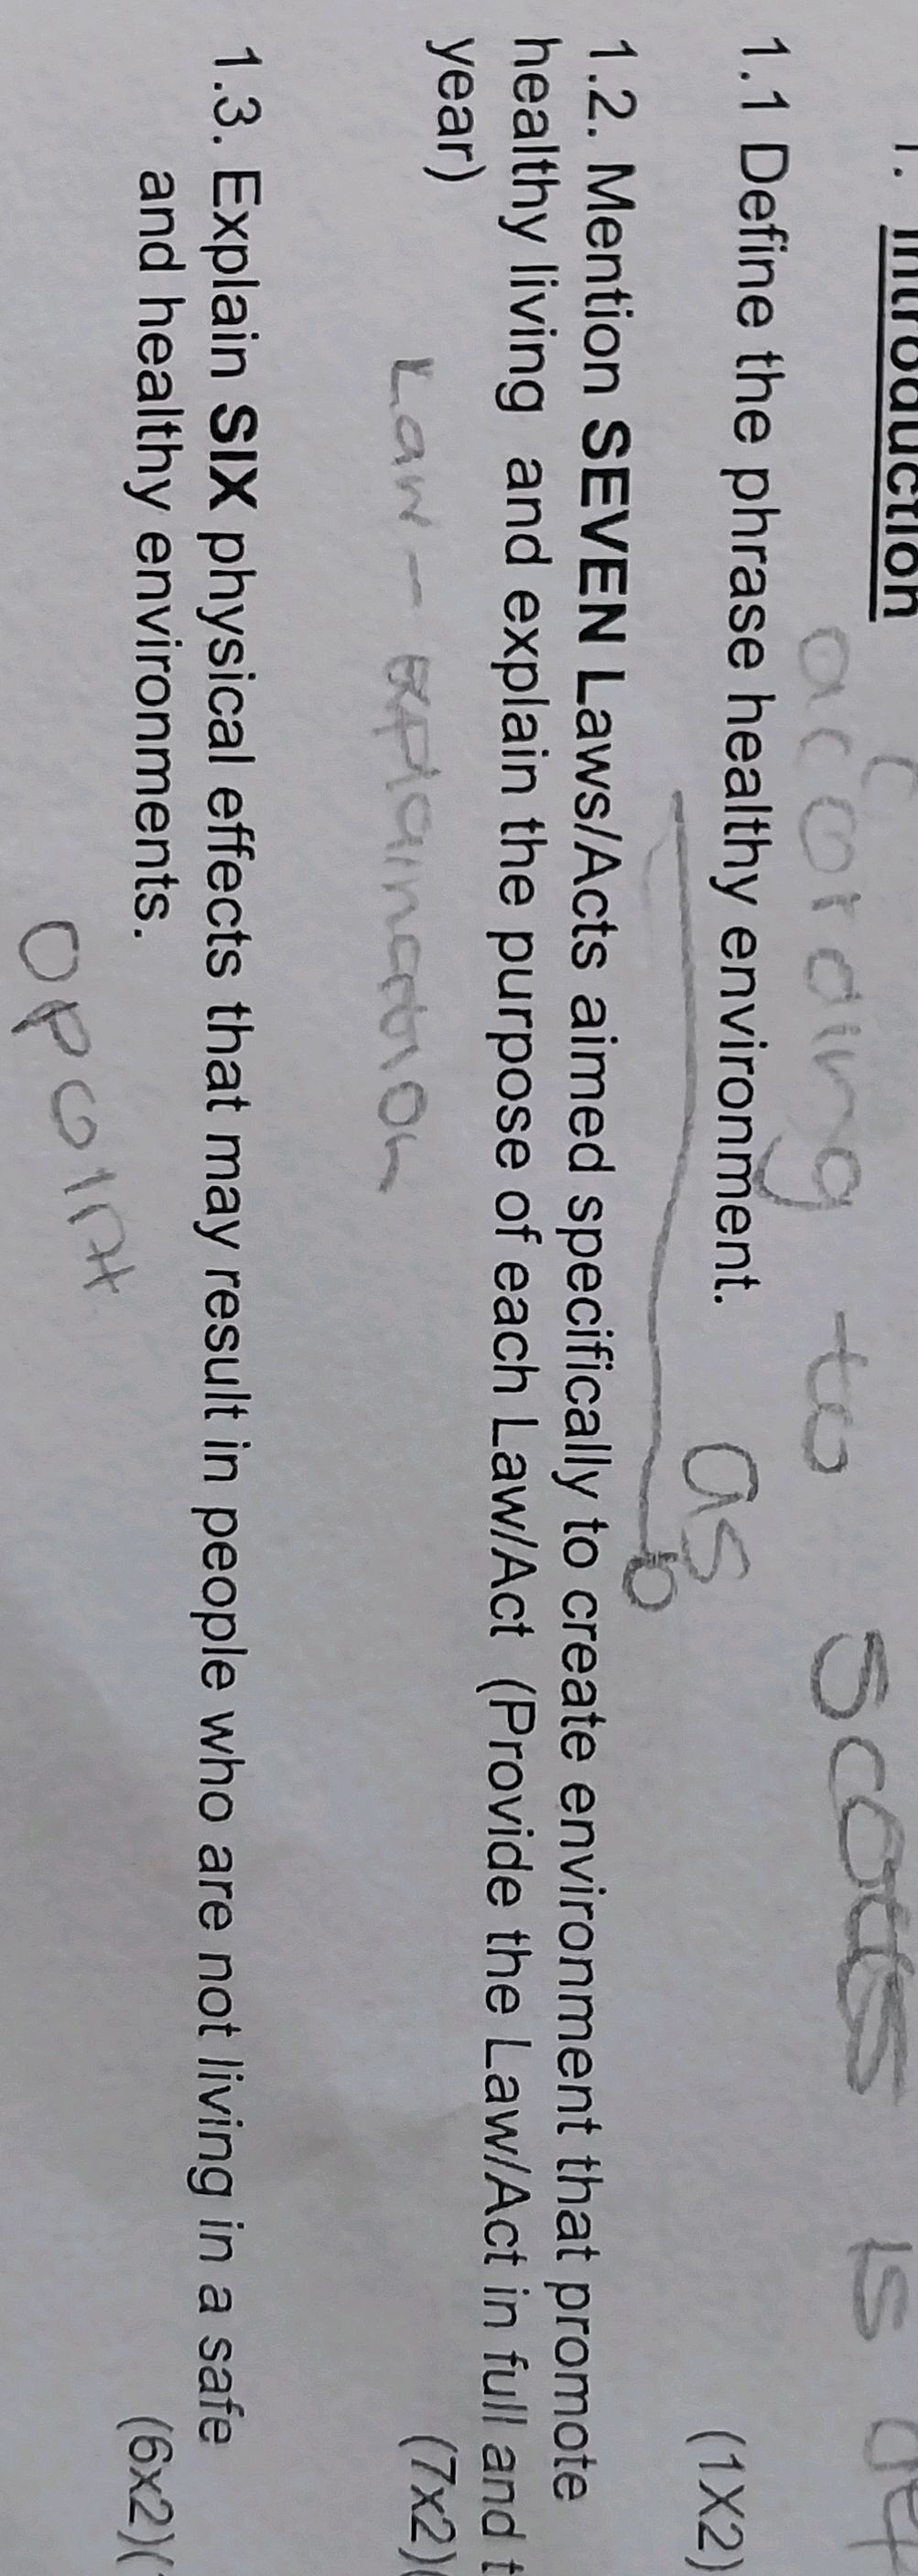 1. Introduction
according to scots is
1.1 Define the phrase healthy environment. as (1X2)
1.2. Mention SEVEN Laws/Acts aimed specifically to create environment that promote
healthy living and explain the purpose of each Law/Act (Provide the Law/Act in full and t
year) (7x2)(
Law - Explaination
1.3. Explain SIX physical effects that may result in people who are not living in a safe
and healthy environments. (6x2)(